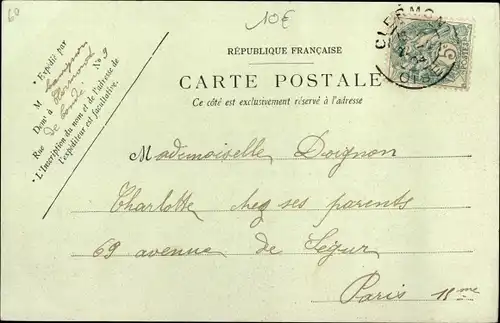 60
10€
CLERMONT
OISE
RÉPUBLIQUE FRANÇAISE
CARTE POSTALE
Ce côté est exclusivement réservé à l'adresse
• Expédié par
M
Demt à Clermont
Rue de Condé No 9
• L'Inscription du nom et de l'adresse de
l'expéditeur est facultative.
Mademoiselle Doignon
Charlotte chez ses parents
69 avenue de Ségur
Paris 15me